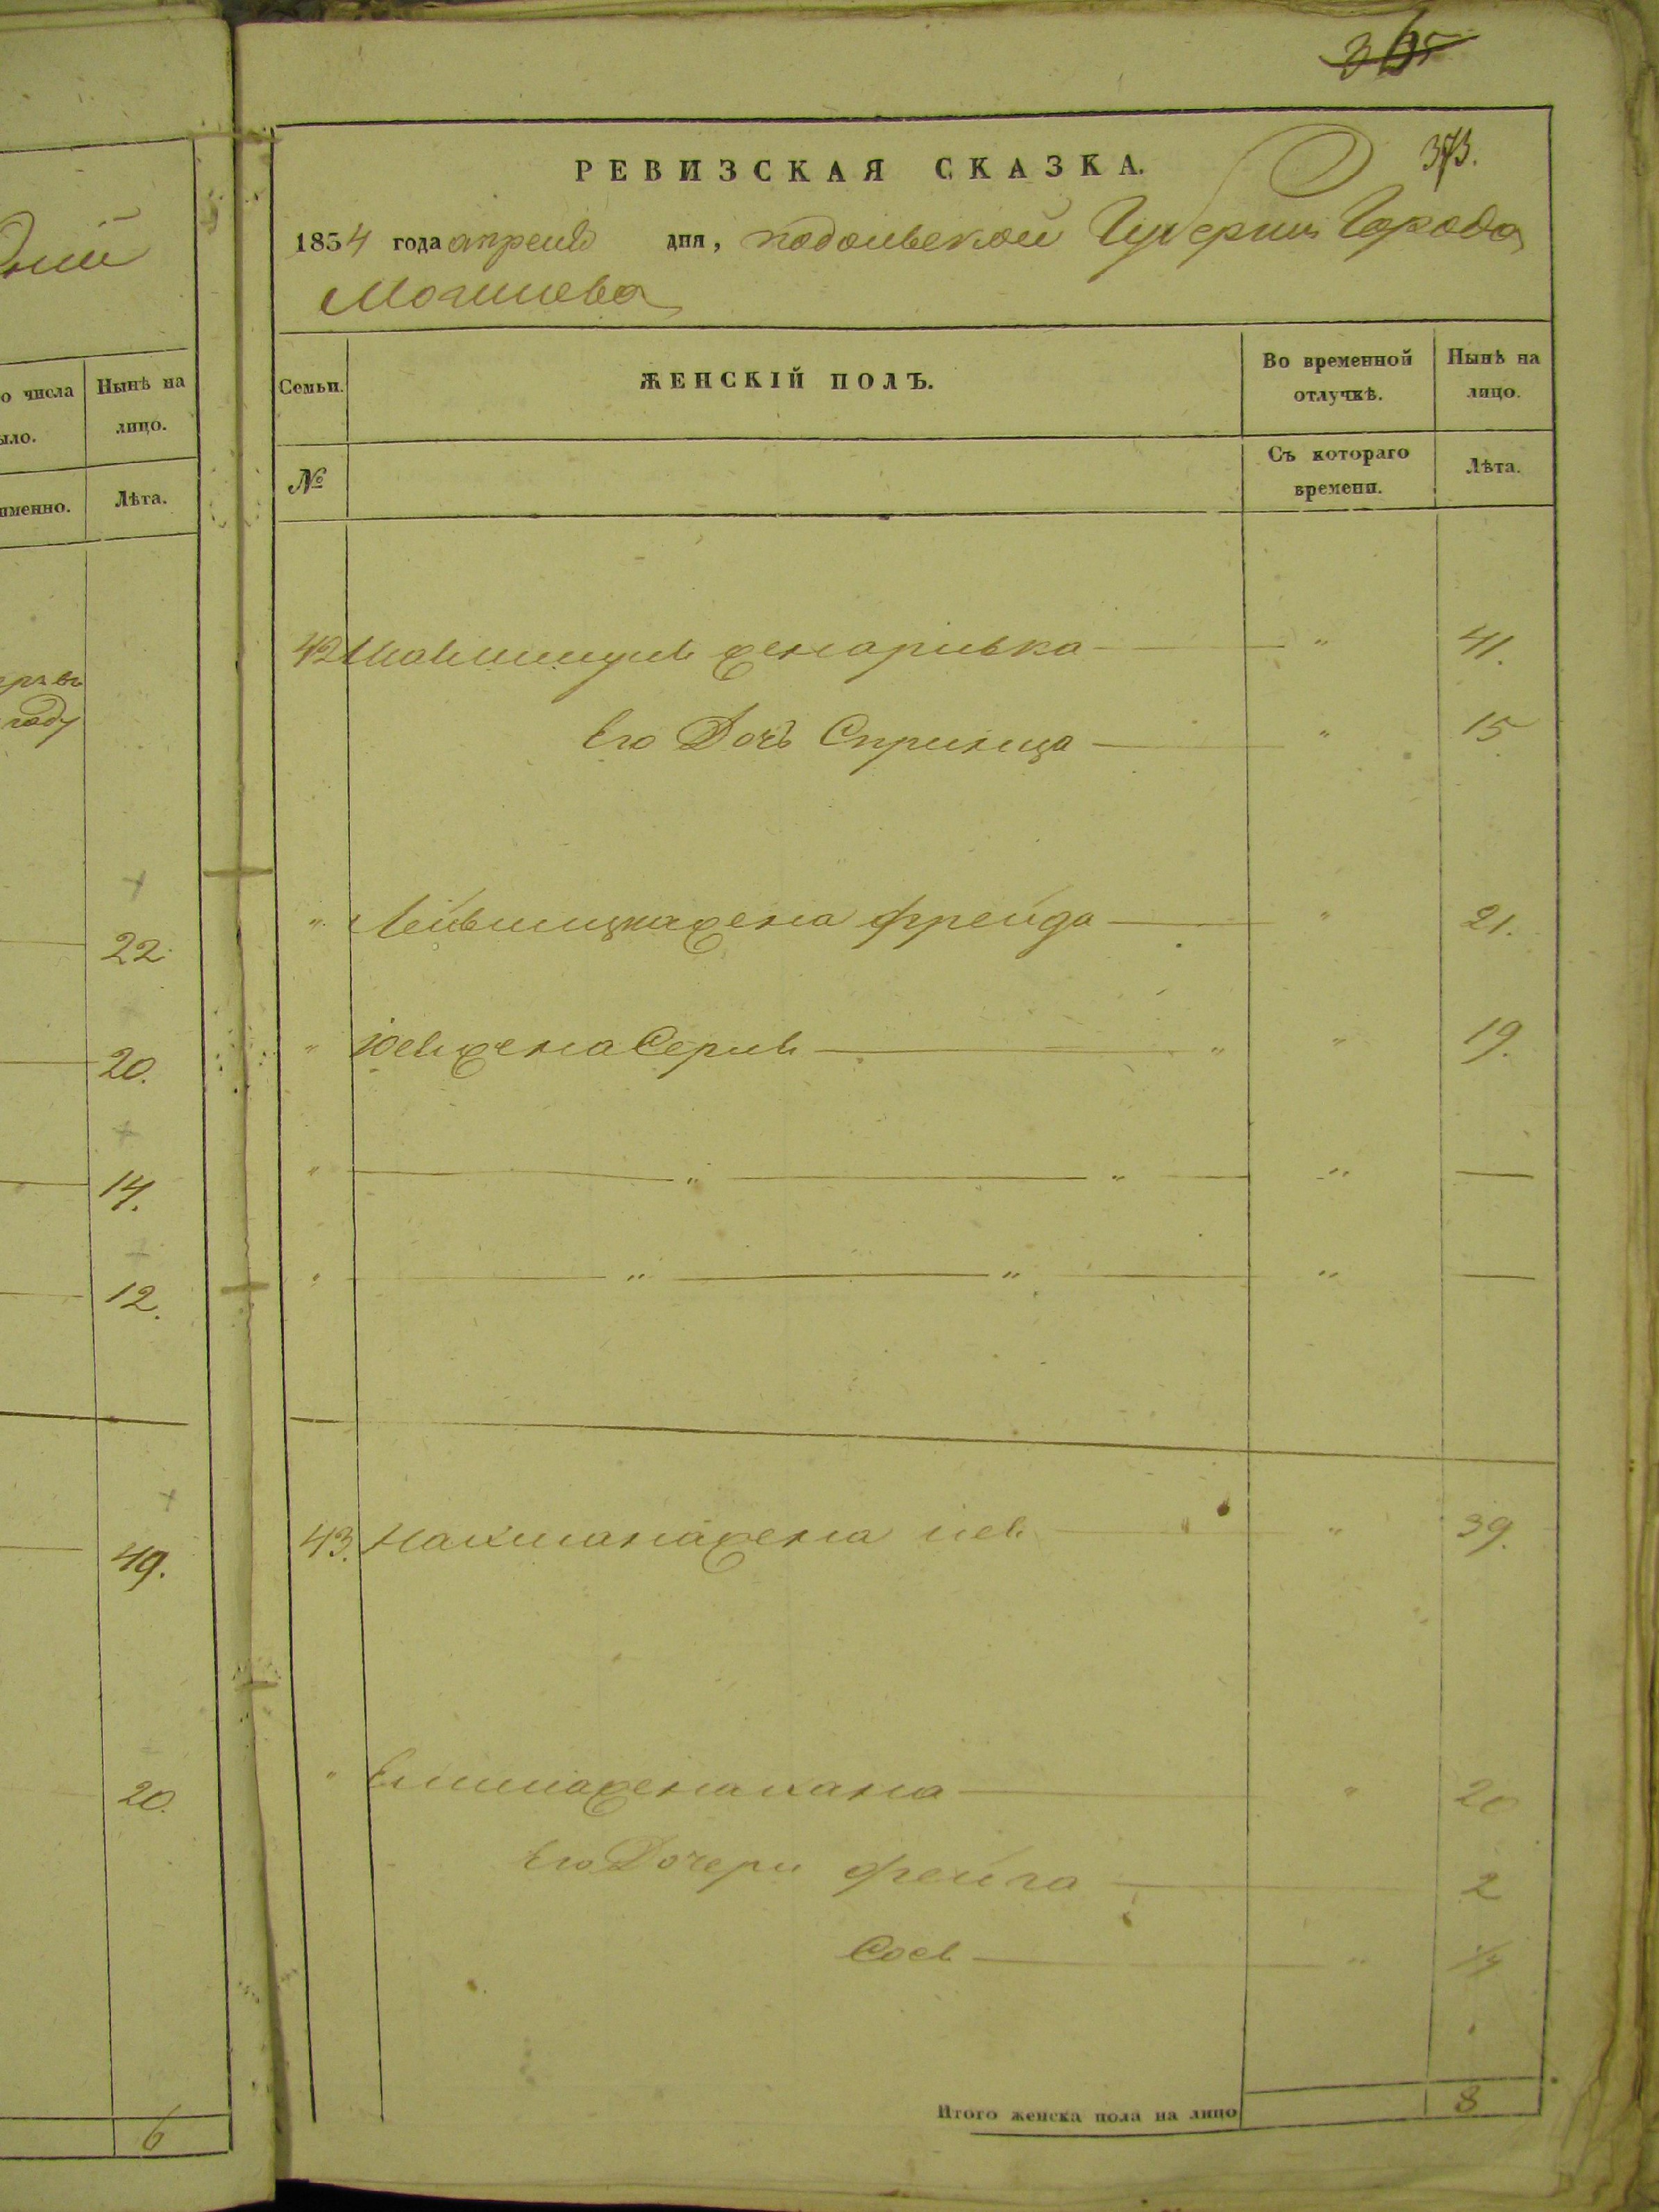 365
РЕВИЗСКАЯ СКАЗКА. 373.
1854 года апреля дня, подольской Губернии Города
Могилева
о числа Нынѣ на
ыло. лицо.
именно. Лѣта.
Семьи. ЖЕНСКІЙ ПОЛЪ. Во временной Нынѣ на
отлучкѣ. лицо.
№ Съ котораго Лѣта.
времени.
году
42 жена ривка — " 41.
Его Дочь Сприньца — " 15
" жена фрейда — " 21.
22.
" жена Серль — " " 19.
20.
" — " — " — " —
14.
" — " — " — " —
12.
43. Нахмана жена лея — " 39.
49.
" жена хана — " 20
20.
Его Дочери фейга — 2
Сося — "
Итого женска пола на лицо 8
6